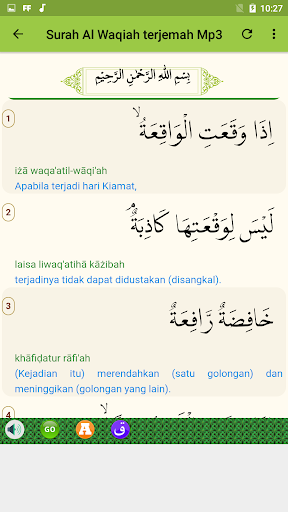 FF 10:27
Surah Al Waqiah terjemah Mp3
بِسْمِ اللهِ الرَّحْمٰنِ الرَّحِيْمِ
1
اِذَا وَقَعَتِ الْوَاقِعَةُۙ
iżā waqa'atil-wāqi'ah
Apabila terjadi hari Kiamat,
2
لَيْسَ لِوَقْعَتِهَا كَاذِبَةٌۘ
laisa liwaq'atihā kāżibah
terjadinya tidak dapat didustakan (disangkal).
3
خَافِضَةٌ رَّافِعَةٌ
khāfiḍatur rāfi'ah
(Kejadian itu) merendahkan (satu golongan) dan
meninggikan (golongan yang lain).
4
GO ق